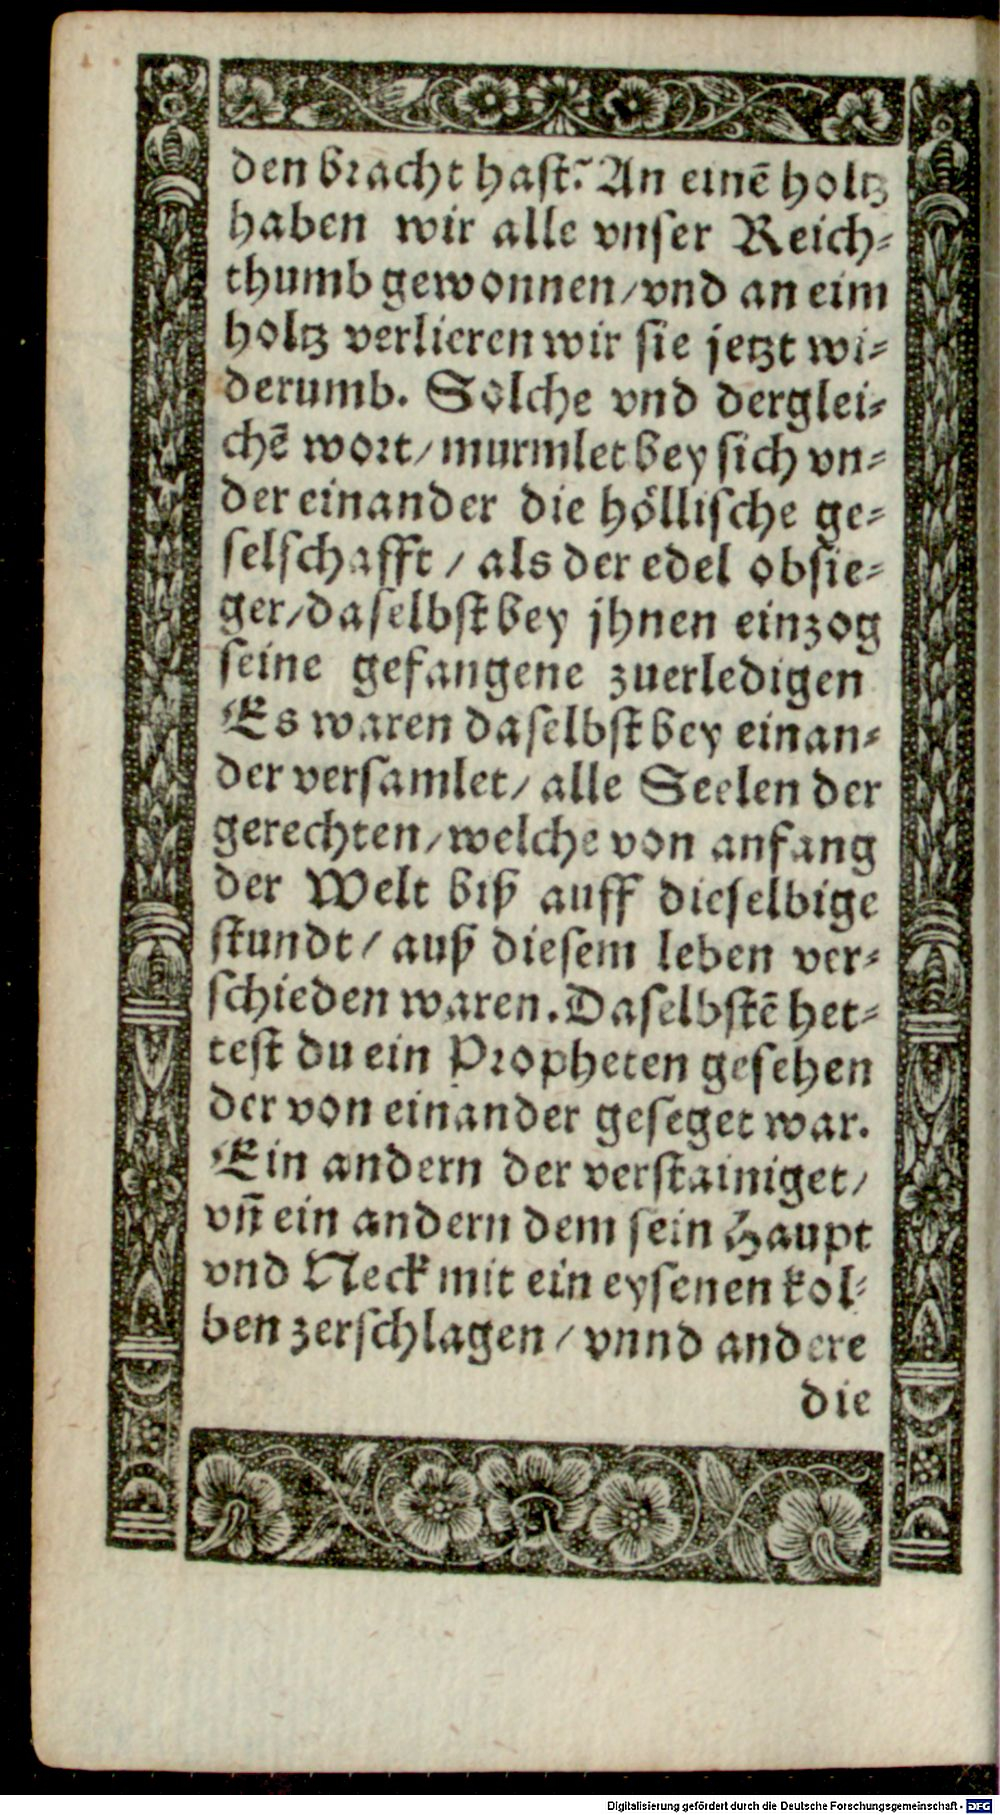 den bracht hast? An einē holtz
haben wir alle vnser Reich-
thumb gewonnen/vnd an eim
holtz verlieren wir sie jetzt wi-
derumb. Solche vnd derglei-
chē wort/ murmlet bey sich vn-
der einander die höllische ge-
selschafft / als der edel obsie-
ger/daselbst bey jhnen einzog
seine gefangene zuerledigen
Es waren daselbst bey einan-
der versamlet/ alle Seelen der
gerechten/welche von anfang
der Welt biß auff dieselbige
stundt/ auß diesem leben ver-
schieden waren. Daselbstē het-
test du ein Propheten gesehen
der von einander geseget war.
Ein andern der verstainiget/
vñ ein andern dem sein Haupt
vnd Neck mit ein eysenen kol-
ben zerschlagen / vnnd andere
die
Digitalisierung gefördert durch die Deutsche Forschungsgemeinschaft - DFG